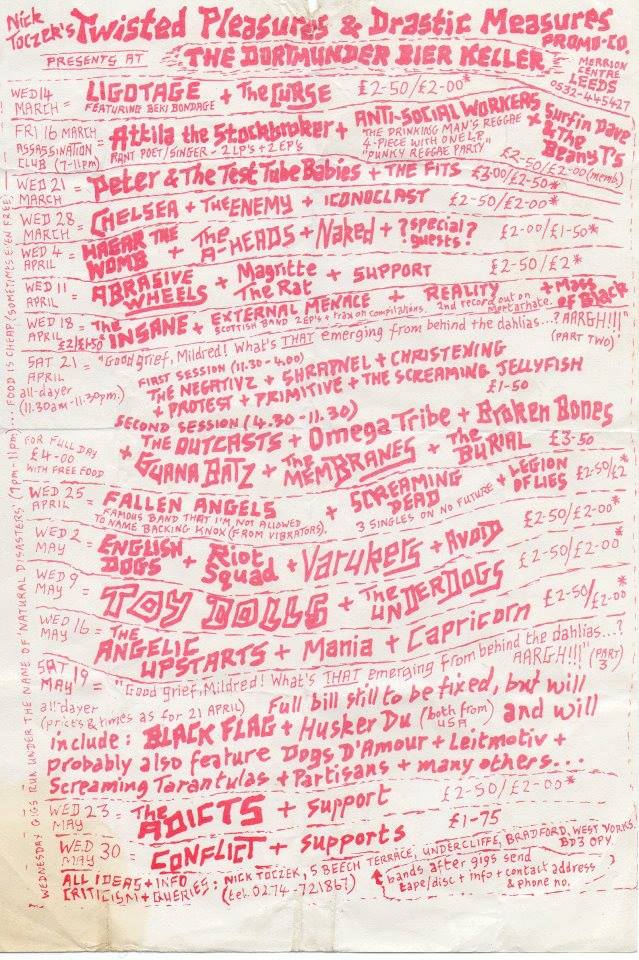 Nick Toczek's Twisted Pleasures & Drastic Measures PROMO-CO.
PRESENTS AT THE DORTMUNDER BIER KELLER MERRION CENTRE LEEDS 0532-445427
WED 14 MARCH = LIGOTAGE + The CURSE £2-50/£2-00*
FEATURING BEKI BONDAGE
FRI 16 MARCH = Attila the Stockbroker + ANTI-SOCIAL WORKERS + Surfin Dave & The Beany T's
ASSASSINATION CLUB (7-11pm) RANT POET/SINGER - 2 LP's + 2 EP's "THE DRINKING MAN'S REGGAE 4-PIECE WITH ONE L.P. "PUNKY REGGAE PARTY" £2-50/£2-00 (memb)
WED 21 MARCH = Peter & The Test Tube Babies + THE FITS £3-00/£2-50*
WED 28 MARCH = CHELSEA + THE ENEMY + ICONOCLAST £2-50/£2-00*
WED 4 APRIL = HAGAR THE WOMB + The A-HEADS + Naked + ?special guests? £2-00/£1-50*
WED 11 APRIL = ABRASIVE WHEELS + Magritte The Rat + SUPPORT £2-50/£2*
WED 18 APRIL = The INSANE + EXTERNAL MENACE + REALITY + Mass of Black
£2/£1-50* SCOTTISH BAND 2 EP's + trax on compilations. 2nd record out on Mortarhate.
SAT 21 APRIL = "Good grief, Mildred! What's THAT emerging from behind the dahlias...? AARGH!!!" (PART TWO)
all-dayer (11.30am-11.30pm.)
FIRST SESSION (11.30-4.00)
THE NEGATIVZ + SHRAPNEL + CHRISTENING
+ PROTEST + PRIMITIVE + THE SCREAMING JELLYFISH £1-50
SECOND SESSION (4.30-11.30)
THE OUTCASTS + Omega Tribe + Broken Bones
+ GUANA BATZ + The MEMBRANES + The BURIAL £3-50
FOR FULL DAY £4-00 WITH FREE FOOD
WED 25 APRIL = FALLEN ANGELS + SCREAMING DEAD + LEGION OF LIES £2-50/£2*
FAMOUS BAND THAT I'M NOT ALLOWED TO NAME BACKING KNOX (FROM VIBRATORS). 3 SINGLES ON NO FUTURE
WED 2 MAY = ENGLISH DOGS + Riot Squad + Varukers + AVOID £2-50/£2-00*
WED 9 MAY = TOY DOLLS + The UNDERDOGS £2-50/£2-00*
WED 16 MAY = The ANGELIC UPSTARTS + Mania + Capricorn £2-50/£2-00*
SAT 19 MAY = "Good grief, Mildred! What's THAT emerging from behind the dahlias...? AARGH!!!" (PART 3)
all-dayer (prices & times as for 21 APRIL) Full bill still to be fixed, but will
include: BLACK FLAG + Husker Du (both from USA) and will
probably also feature Dogs D'Amour + Leitmotiv +
Screaming Tarantulas + Partisans + many others...
WED 23 MAY = The ADICTS + support £2-50/£2-00*
WED 30 MAY = CONFLICT + supports £1-75
ALL IDEAS + INFO CRITICISM + QUERIES: NICK TOCZEK, 5 BEECH TERRACE, UNDERCLIFFE, BRADFORD, WEST YORKS. BD3 0PY
(tel. 0274-721867)
bands after gigs send tape/disc + info + contact address & phone no.
WEDNESDAY GIGS RUN UNDER THE NAME OF 'NATURAL DISASTERS' (7pm-11pm)... FOOD IS CHEAP (SOMETIMES EVEN FREE)